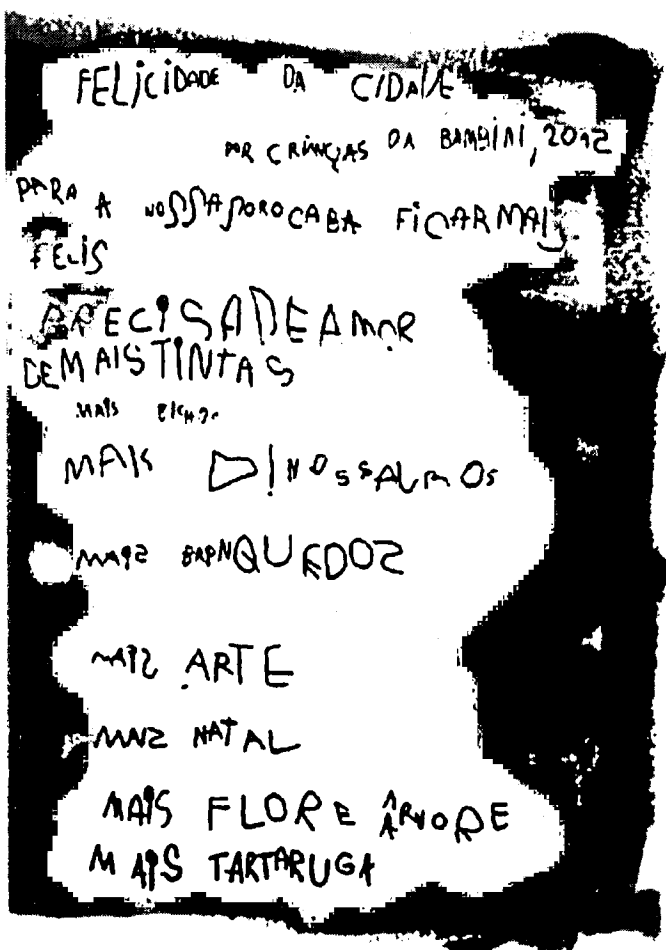 FELICIDADE DA CIDADE
POR CRIANÇAS DA BAMBINI, 2012
PARA A NOSSA SOROCABA FICAR MAIS
FELIS
PRECISA DE AMOR
DE MAIS TINTAS
MAIS
MAIS DINOSSALROS
MAIS BRINQUEDOS
MAIS ARTE
MAIS NATAL
MAIS FLOR E ÁRVORE
MAIS TARTARUGA